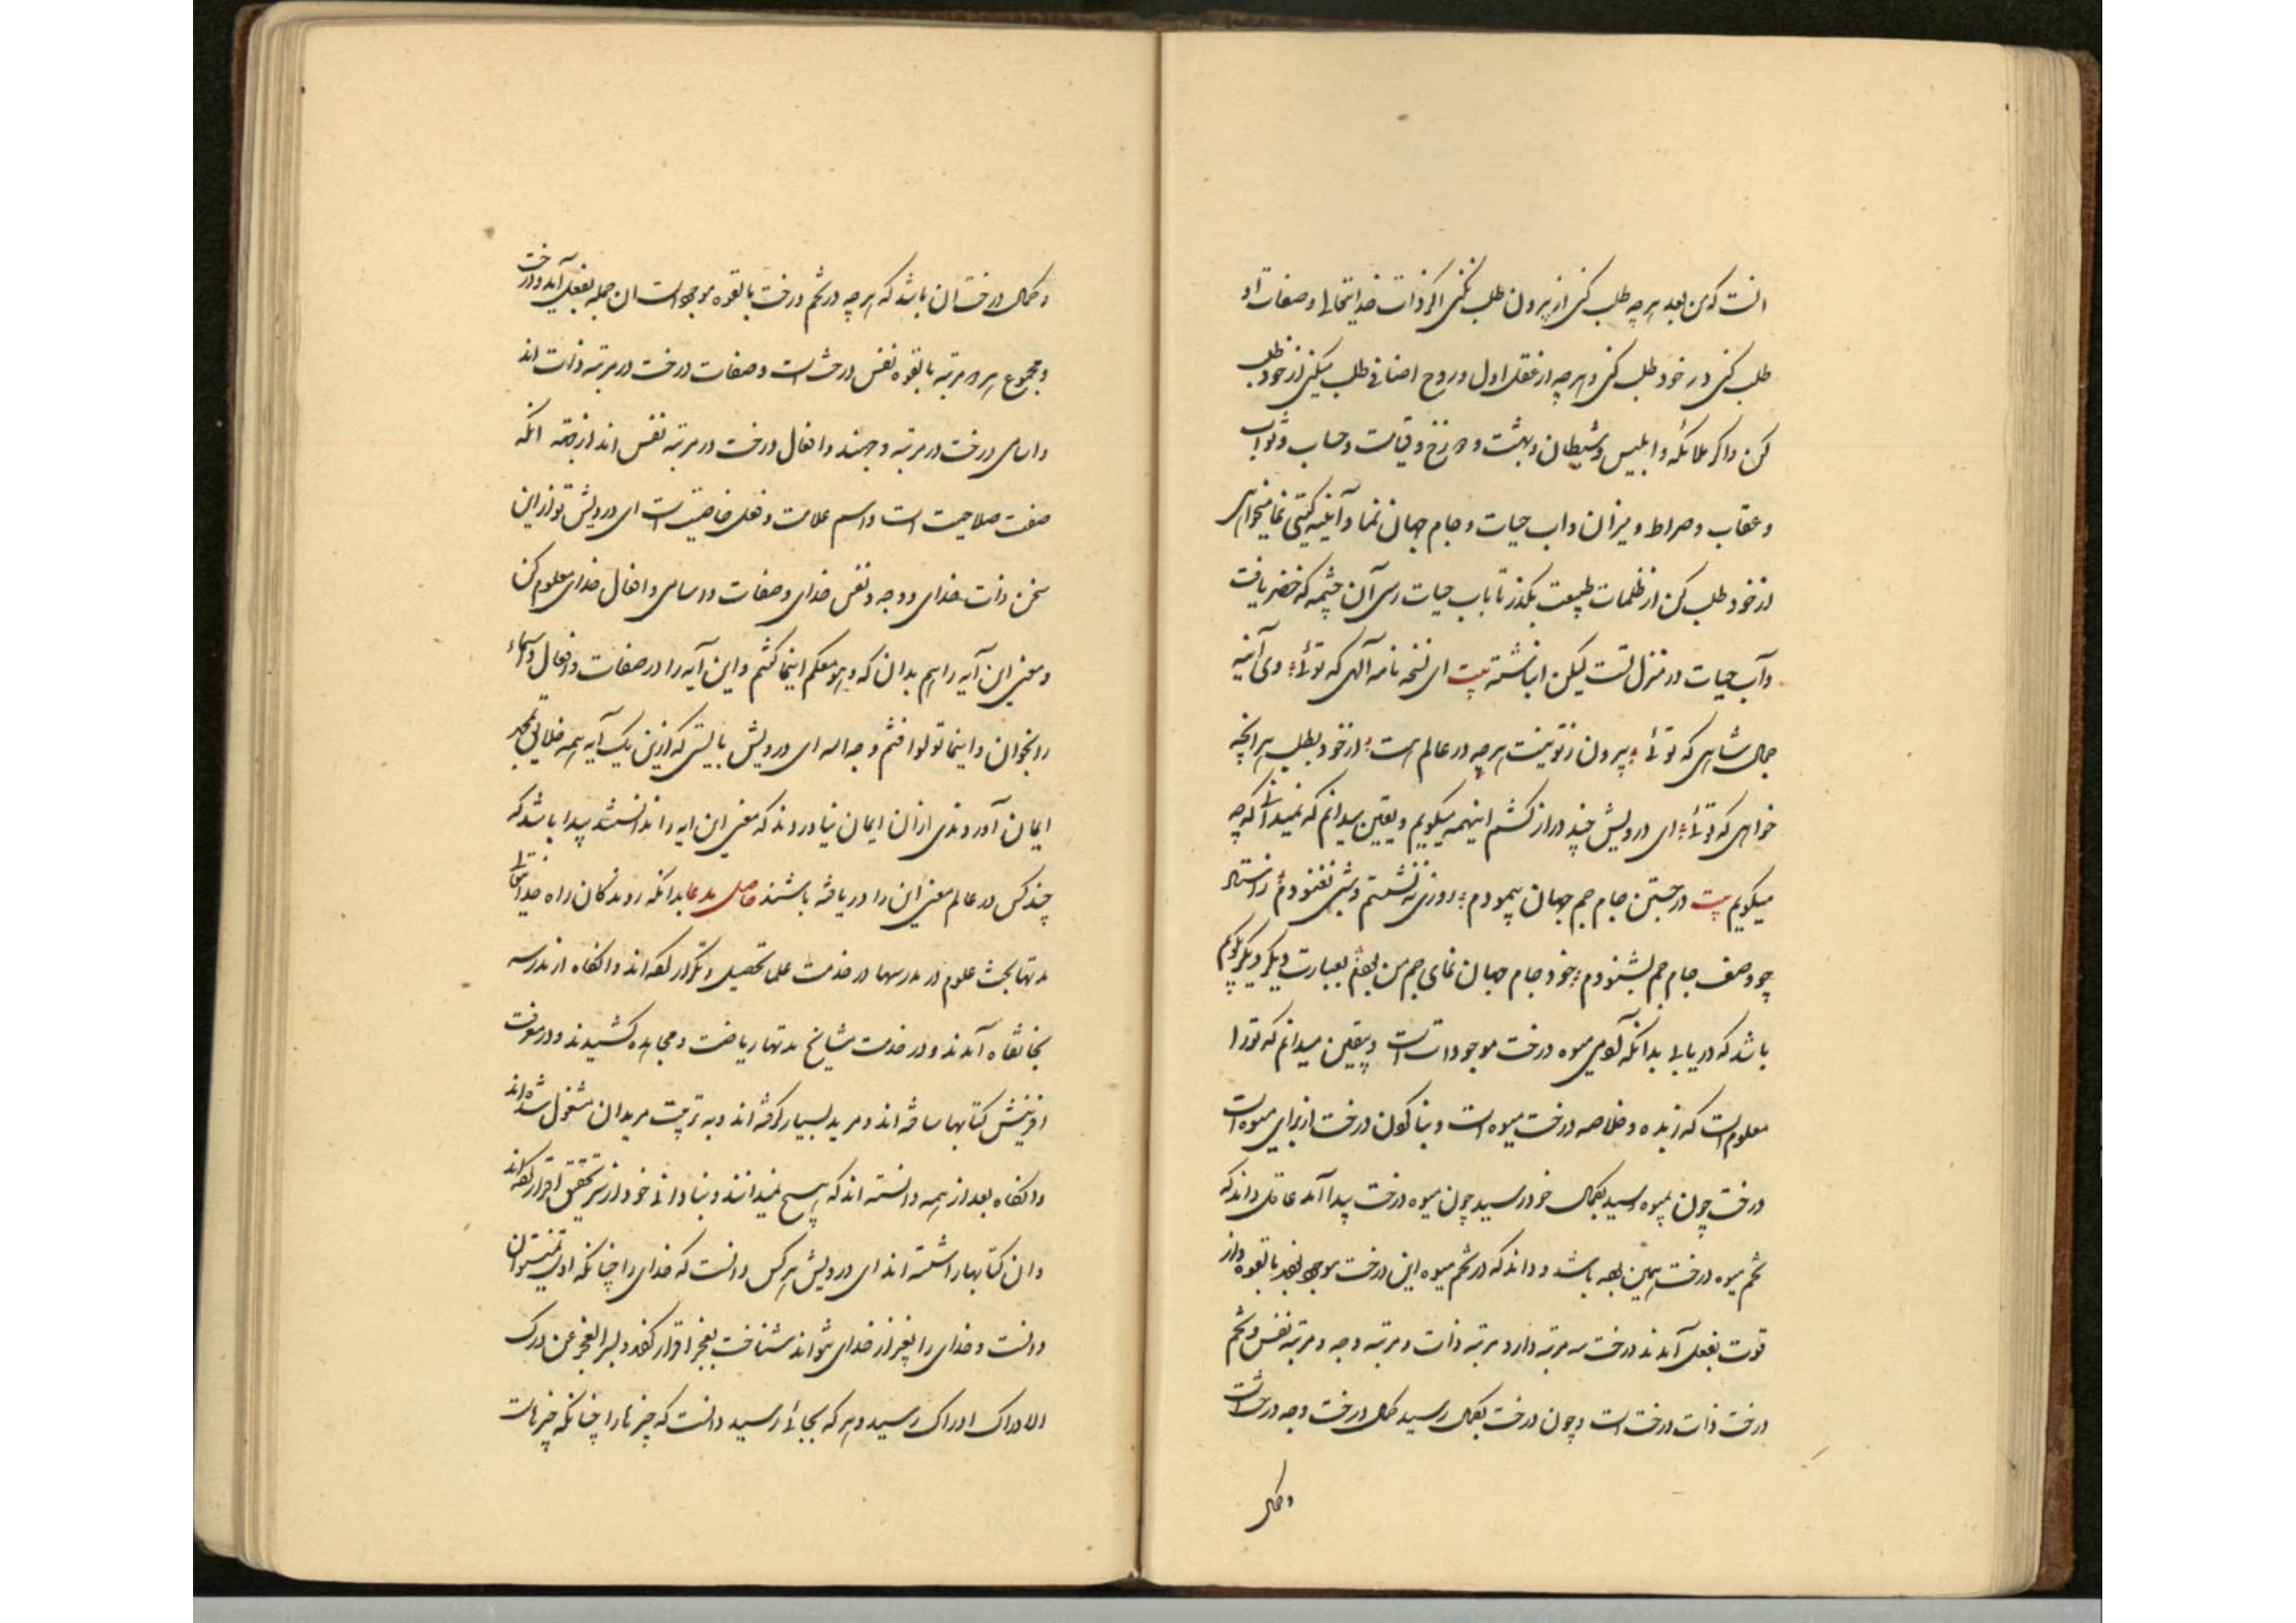 انست که من بعد هرچه طلب کنی از بیرون طلب نکنی اگر ذات خدایتعالی و صفات او
طلب کنی در خود طلب کنی و هرچه از عقل اول و روح اضافی طلب میکنی از خود طلب
کن و اگر ملائکه و ابلیس و شیطان و بهشت و دوزخ و قیامت و حساب و ثواب
و عقاب و صراط و میزان و اب حیات و جام جهان نما و آیینه کیتی نما میخواهی
از خود طلب کن از ظلمات طبیعت بگذر تا باب حیات رسی آن چشمه که خضر یافت
وآب حیات در منزل تست لیکن انباشته بیت ای نسخه نامه آلهی که توئی وی آینه
جمال شاهی که توئی بیرون ز تو نیست هرچه در عالم هست از خود بطلب هر انچه
خواهی که توئی ای درویش چند دراز کشم اینهمه میکویم و یقین میدانم که نمیدانی که چه
میکویم بیت در جستن جام جم جهان پیمودم روزی ننشستم و شبی نغنودم ز استاد
چو وصف جام جم بشنودم خود جام جهان نمای جم من بودم بعبارت دیکر دیکر بکویم
باشد که دریابی بدانکه آدمی میوه درخت موجوداتست و یقین میدانم که تو را
معلوم است که زبده و خلاصه درخت میوه است و بنا کردن درخت از برای میوه است
درخت چون بمیوه رسید بکمال خود رسید چون میوه درخت پیدا آمد عاقل داند که
تخم میوه درخت همین بوده باشد و داند که در تخم میوه این درخت موجود بوده بالقوه و از
قوت بفعل آمدند درخت سه مرتبه دارد مرتبه ذات و مرتبه وجه و مرتبه نفس و تخم
درخت ذات درخت است و چون درخت بکمال رسید کمال درخت وجه درخت است
و کمال
و کمال درخت ان باشد که هرچه در تخم درخت بالقوه موجود است ان جمله بفعل آید و درخت
و مجموع هر دو مرتبه بالقوه نفس درخت است و صفات درخت در مرتبه ذات اند
و اسامی درخت در مرتبه وجهند و افعال درخت در مرتبه نفس اند از جهة انکه
صفت صلاحیت است و اسم علامت و فعل خاصیت است ای درویش تو از این
سخن ذات خدای و وجه و نفس خدای و صفات و اسامی و افعال خدای معلوم کن
و معنی این آیه را هم بدان که و هو معکم اینما کنتم و این آیه را در صفات و افعال و اسماء
را بخوان و اینما تولوا فثم وجه الله ای درویش بایستی که از این یک آیه همه خلایق بمحمد
ایمان آوردندی ازان ایمان نیاوردند که معنی این ایه را ندانستند پیدا باشد که
چند کس در عالم معنی این را دریافته باشند حاصل مدعا بدانکه روندکان راه خدایتعالی
مدتها بحث علوم در مدرسها در خدمت علما تحصیل و تکرار کرده اند و انکاه از مدرسه
بخانقاه آمدند و در خدمت مشایخ مدتها ریاضت و مجاهده کشیدند و در معرفت
افرینش کتابها ساخته اند و مرید بسیار کرفته اند و به تربیت مریدان مشغول شده اند
و انکاه بعد از همه دانسته اند که هیچ نمیدانند و بنادانی خود از سر تحقیق اقرار کرده اند
و ان کتابها را شسته اند ای درویش هر کس دانست که خدای را چنانکه اوست نمیتوان
دانست و خدای را بغیر از خدای نتواند شناخت بعجز اقرار کرد و بسر العجز عن درک
الادراک ادراک رسید و هر که بجائی رسید دانست که چیزها را چنانکه چیزهاست